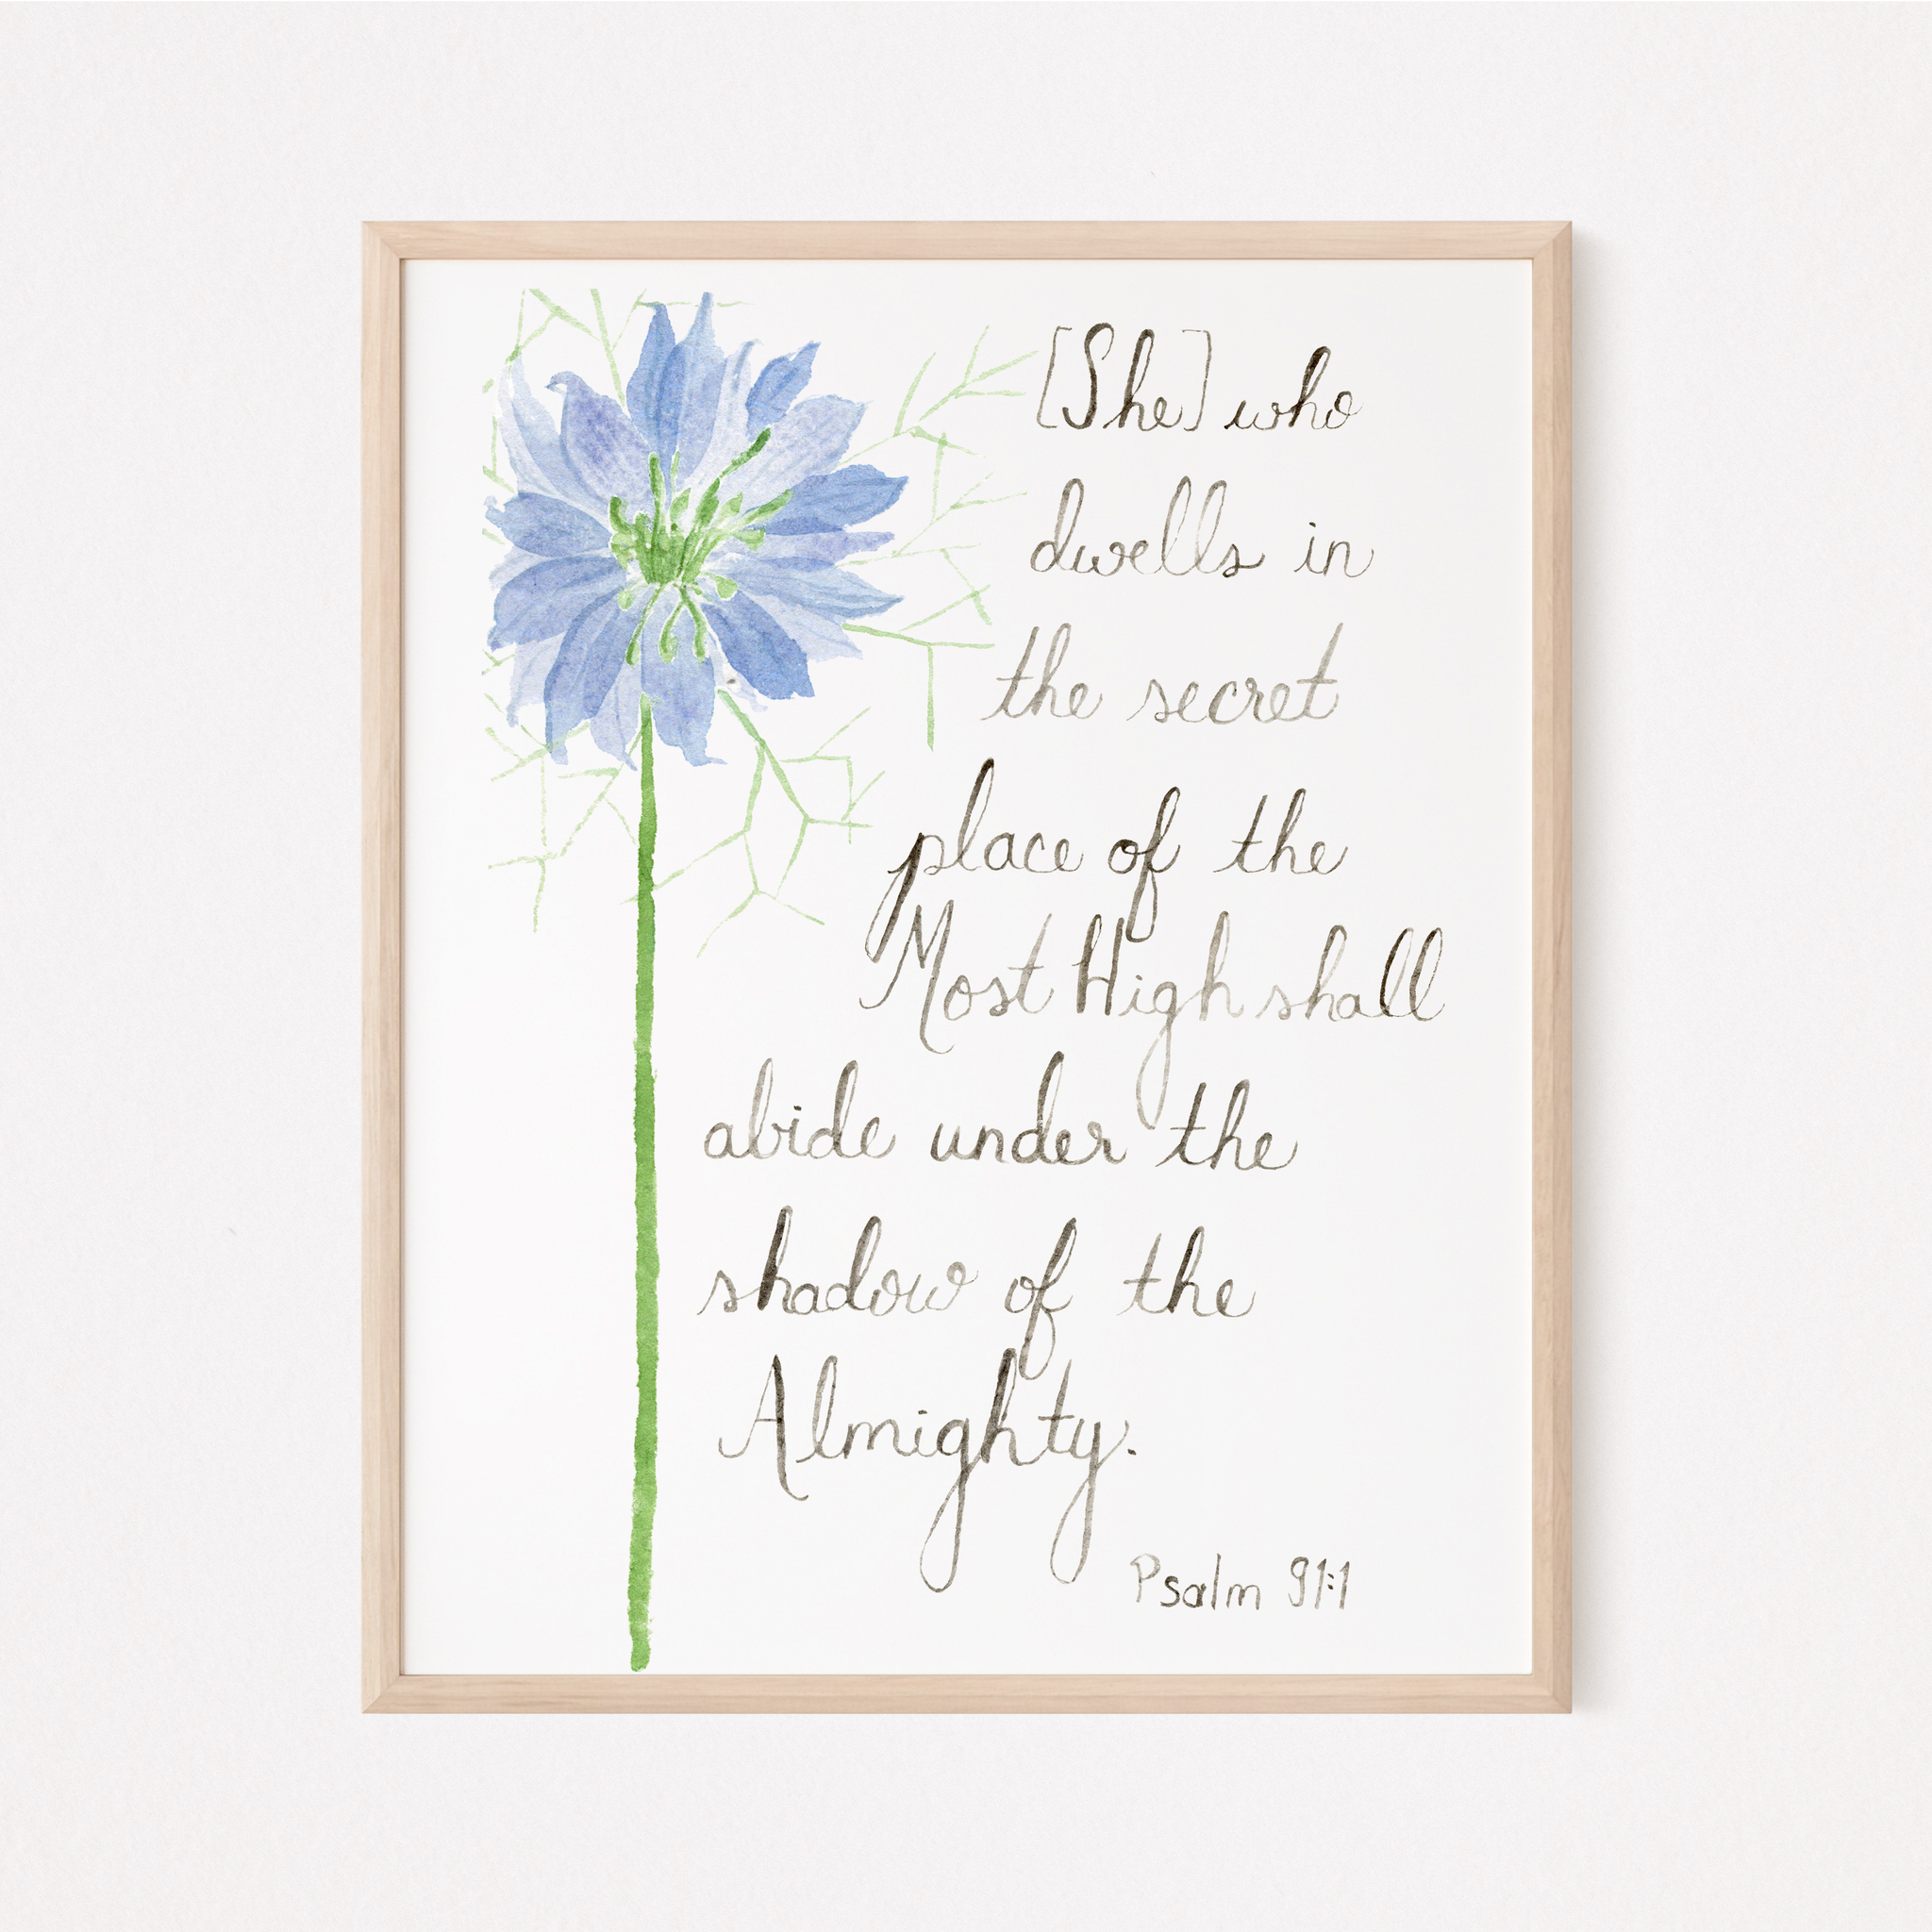 [She] who
dwells in
the secret
place of the
Most High shall
abide under the
shadow of the
Almighty.
Psalm 91:1